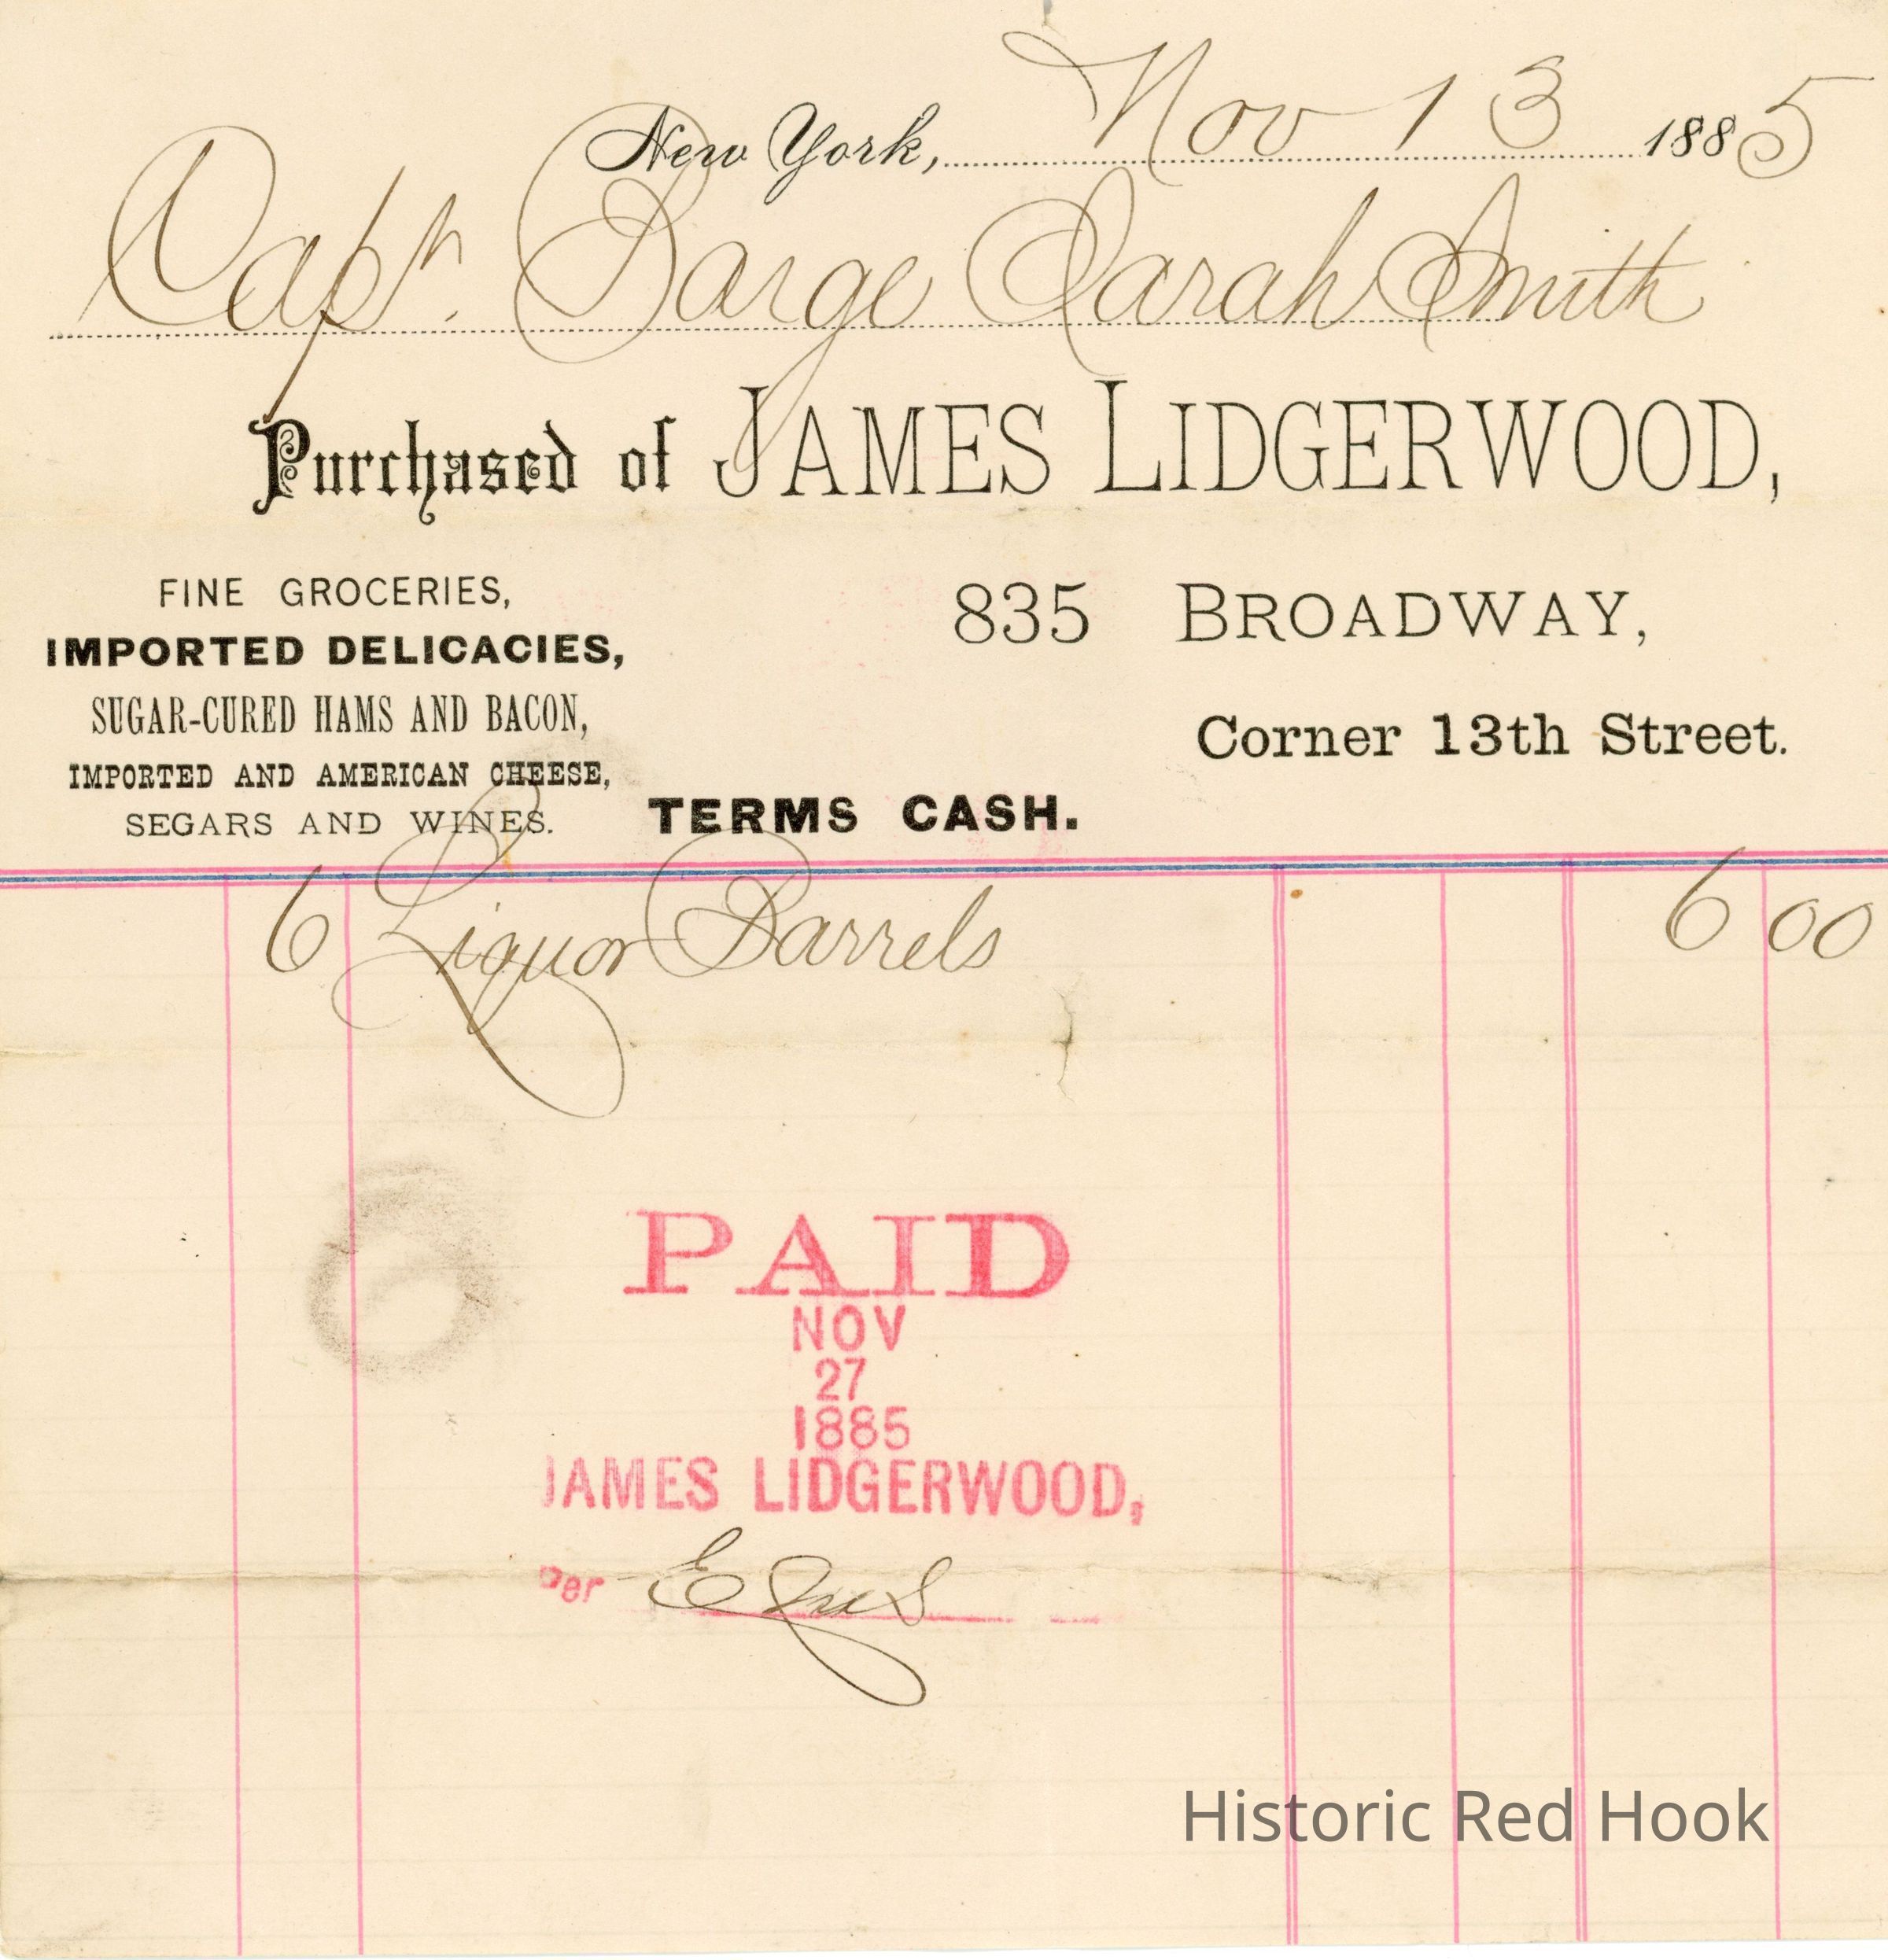 New York, Nov 13 1885
Capt. Barge Sarah Smith
Purchased of JAMES LIDGERWOOD,
FINE GROCERIES,
IMPORTED DELICACIES,
SUGAR-CURED HAMS AND BACON,
IMPORTED AND AMERICAN CHEESE,
SEGARS AND WINES.
835 BROADWAY,
Corner 13th Street.
TERMS CASH.
6 Liquor Barrels 6 00
PAID
NOV
27
1885
JAMES LIDGERWOOD,
Per
Historic Red Hook